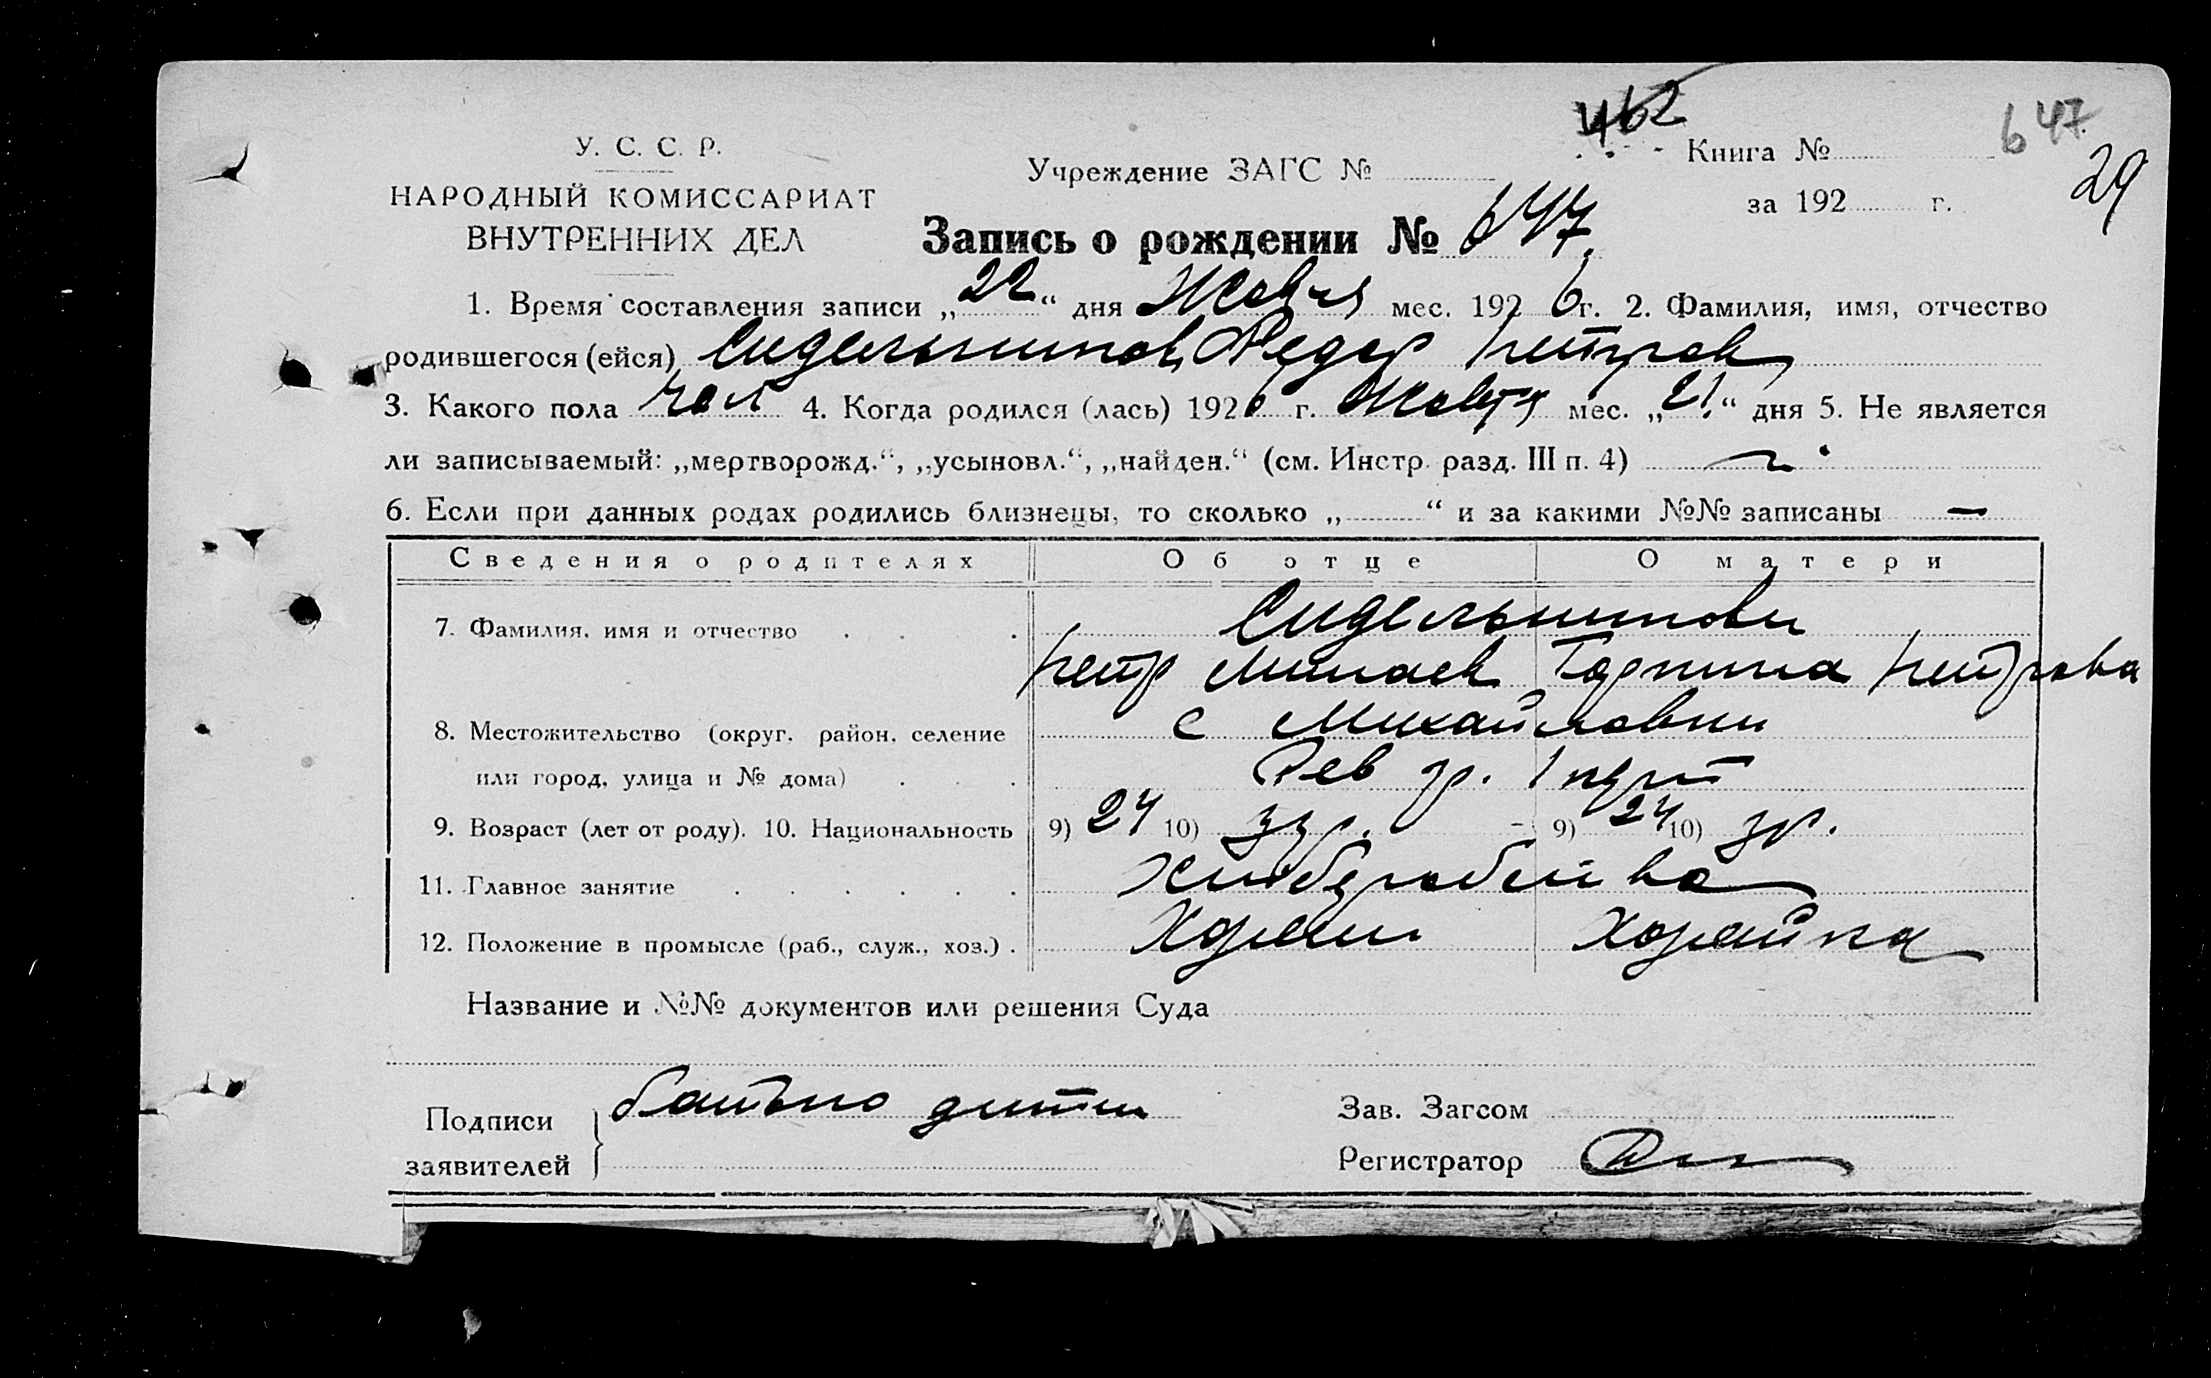 462
647
29
У. С. С. Р.
НАРОДНЫЙ КОМИССАРИАТ
ВНУТРЕННИХ ДЕЛ
Учреждение ЗАГС №
Книга №
за 192 г.
Запись о рождении № 647.
1. Время составления записи „22“ дня Жовтя мес. 1926 г. 2. Фамилия, имя, отчество
родившегося (ейся) Сидельников Федор Петров
3. Какого пола чол 4. Когда родился (лась) 1926 г. Жовтя мес. „21.“ дня 5. Не является
ли записываемый: „мертворожд.“, „усыновл.“, „найден.“ (см. Инстр. разд. III п. 4)
6. Если при данных родах родились близнецы, то сколько „ “ и за какими №№ записаны —
Сведения о родителях Об отце О матери
7. Фамилия, имя и отчество Сидельникови
Петр Минаев Горпина Петрова
8. Местожительство (округ, район, селение с Михайловки
или город, улица и № дома)
9. Возраст (лет от роду). 10. Национальность 9) 24 10) 9) 24 10)
11. Главное занятие Хліборобства
12. Положение в промысле (раб., служ., хоз.) Хозяин Хозяйка
Название и №№ документов или решения Суда
Подписи заявителей батько дитин
Зав. Загсом
Регистратор